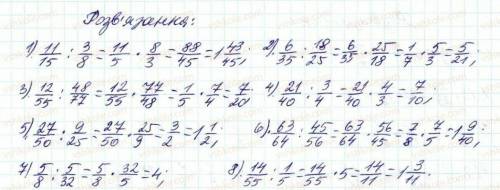 Розв'язання:
1) 11/15 : 3/8 = 11/5 · 8/3 = 88/45 = 1 43/45; 2) 6/35 : 18/25 = 6/35 · 25/18 = 1/7 · 5/3 = 5/21;
3) 12/55 : 48/77 = 12/55 · 77/48 = 1/5 · 7/4 = 7/20; 4) 21/40 : 3/4 = 21/40 · 4/3 = 7/10;
5) 27/50 : 9/25 = 27/50 · 25/9 = 3/2 = 1 1/2; 6) 63/64 : 45/56 = 63/64 · 56/45 = 7/8 · 7/5 = 1 9/40;
7) 5/8 : 5/32 = 5/8 · 32/5 = 4; 8) 14/55 : 1/5 = 14/55 · 5 = 14/11 = 1 3/11;